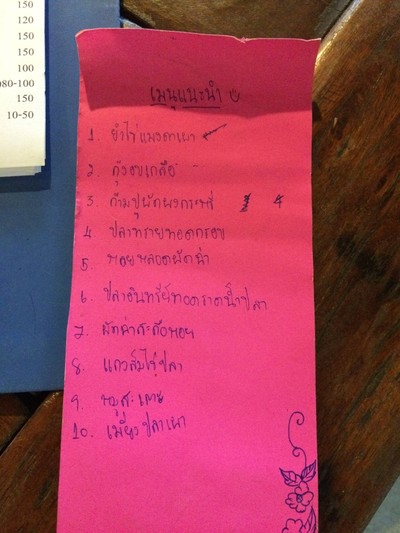 150
120
150
150
100
080-100
150
10-50
เมนูแนะนำ
1. ยำไข่แมงดาเผา
2. กุ้งอบเกลือ
3. ก้ามปูผัดผงกะหรี่ 4
4. ปลาทรายทอดกรอบ
5. หอยหลอดผัดฉ่า
6. ปลาอินทรีย์ทอดราดน้ำปลา
7. ผัดฉ่าสะดือหอย
8. แกงส้มไข่ปลา
9. หมูสะเต๊ะ
10. เมี่ยงปลาเผา